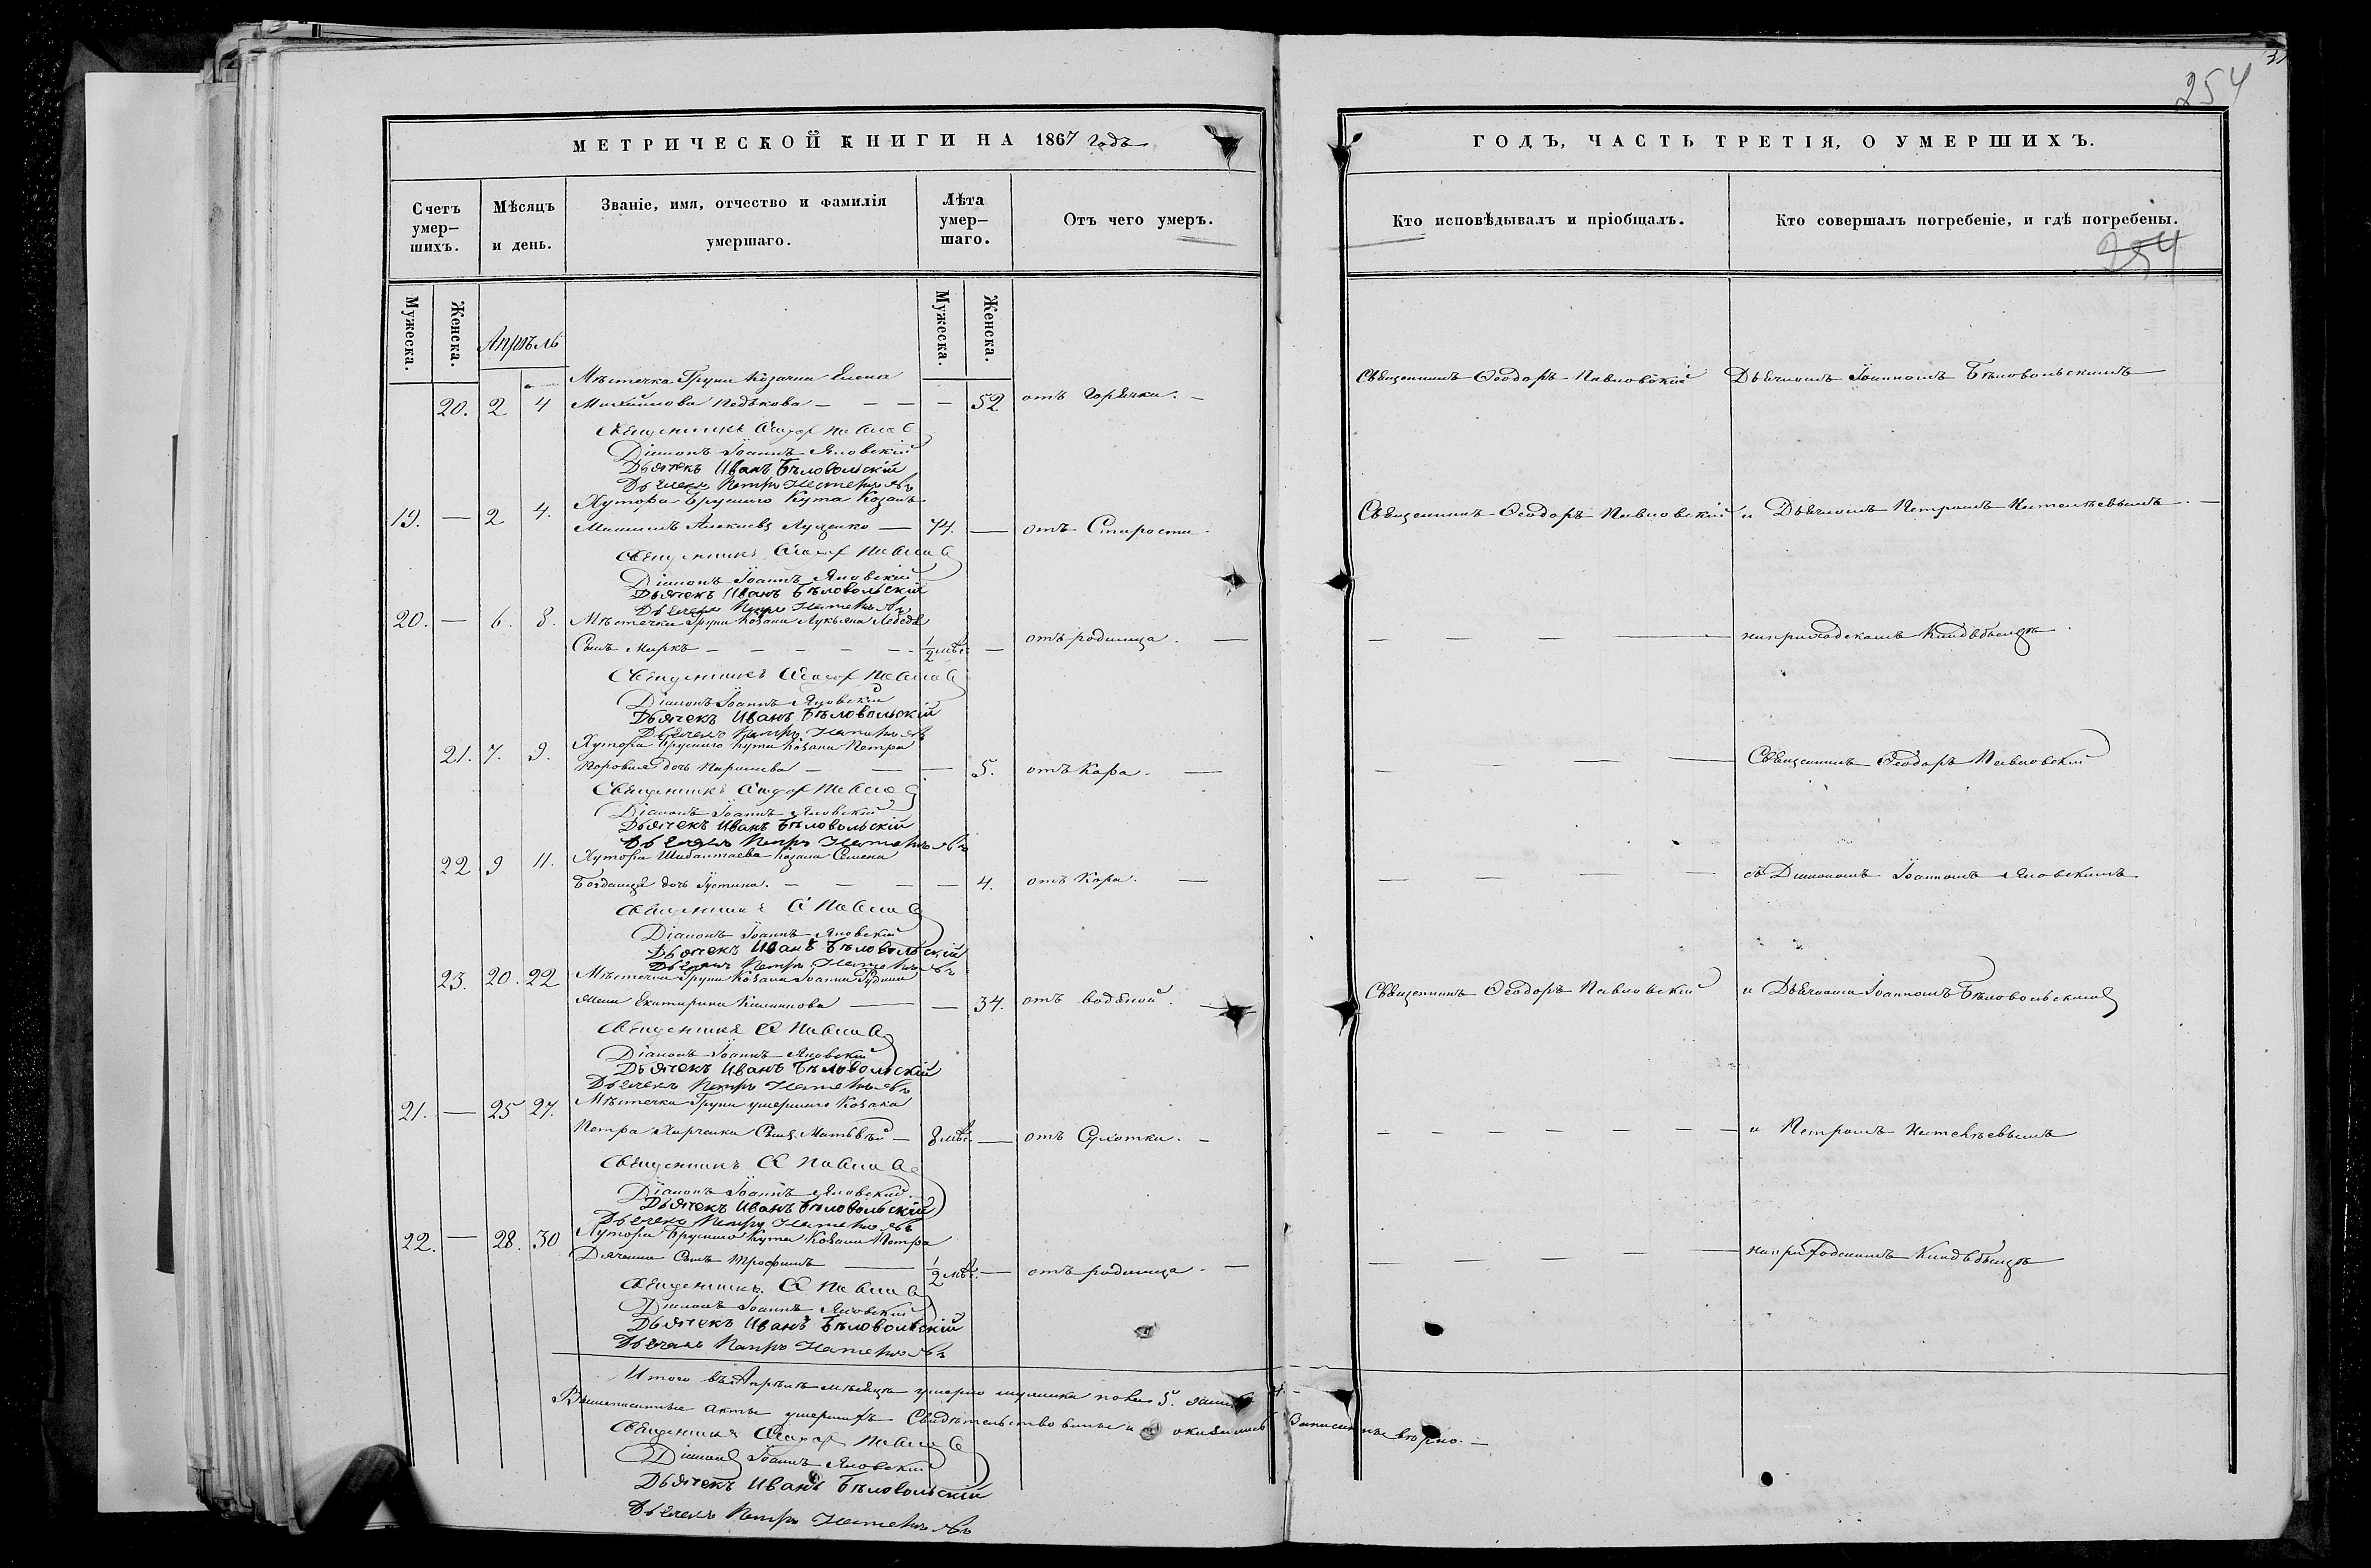 254
МЕТРИЧЕСКОЙ КНИГИ НА 1867 годъ
ГОДЪ, ЧАСТЬ ТРЕТІЯ, О УМЕРШИХЪ.
Счетъ умер–шихъ.
Мѣсяцъ и день.
Званіе, имя, отчество и фамилія умершаго.
Лѣта умер–шаго.
Отъ чего умеръ.
Кто исповѣдывалъ и пріобщалъ.
Кто совершалъ погребеніе, и гдѣ погребены.
254
Мужеска. Женска. Апрѣль Мужеска. Женска.
Мѣстечка Груни Козачка Елена
20. 2 4 Михайлова – – – – 52 отъ Горячки. – Священникъ Ѳеодоръ Павловскій Дьячкомъ Іоанномъ Бѣловольскимъ
Священникъ Ѳеодоръ Павлов
Діаконъ Іоаннъ Яновскій
Дьячекъ Иванъ Бѣловольскій
Дьячекъ Петръ
Хутора Бруснаго Кута Козакъ
19. — 2 4. Луценко — 74. — отъ Старости. Священникъ Ѳеодоръ Павловскій и Дьячкомъ Петромъ
Священникъ Ѳеодоръ Павлов
Діаконъ Іоаннъ Яновскій
Дьячекъ Иванъ Бѣловольскій
Дьячекъ Петръ
20. — 6. 8. Мѣстечка Груни Козака Лукьяна Лебедя
Сынъ Маркъ – – – – – 1/2 мѣс. — отъ родимца. — — — — — на приходскомъ Кладбищѣ
Священникъ Ѳеодоръ Павлов
Діаконъ Іоаннъ Яновскій
Дьячекъ Иванъ Бѣловольскій
Дьячекъ Петръ
21. 7. 9. Хутора Бруснаго Кута Козака Петра
дочь — — — 5. отъ Кора. — — — — — Священникъ Ѳеодоръ Павловскій
Священникъ Ѳеодоръ Павлов
Діаконъ Іоаннъ Яновскій
Дьячекъ Иванъ Бѣловольскій
Дьячекъ Петръ
22 9 11. Хутора Козака Семена
дочь Іустина. – – – – 4. отъ Кора. — — — — — съ Діакономъ Іоанномъ Яновскимъ
Священникъ Ѳ Павлов
Діаконъ Іоаннъ Яновскій
Дьячекъ Иванъ Бѣловольскій
Дьячекъ Петръ
23. 20. 22 Мѣстечка Груни Козака Іоанна
жена Екатерина — — 34. отъ водяной. — Священникъ Ѳеодоръ Павловскій и Дьячкомъ Іоанномъ Бѣловольскимъ
Священникъ Ѳ Павлов
Діаконъ Іоаннъ Яновскій
Дьячекъ Иванъ Бѣловольскій
Дьячекъ Петръ
21. — 25 27. Мѣстечка Груни умершаго Козака
Петра Харченка Сынъ Матвѣй – 8 мѣс. — отъ Сухотки. – – – – – – – – и Петромъ
Священникъ Ѳ Павлов
Діаконъ Іоаннъ Яновскій
Дьячекъ Иванъ Бѣловольскій
Дьячекъ Петръ
22. — 28. 30 Хутора Бруснаго Кута Козака Петра
Дяченка Сынъ Трофимъ — 1/2 мѣс. — отъ родимца. — — — — — на приходскомъ Кладбищѣ
Священникъ Ѳ Павлов
Діаконъ Іоаннъ Яновскій
Дьячекъ Иванъ Бѣловольскій
Дьячекъ Петръ
Итого въ Апрѣлѣ мѣсяцѣ умерло мужеска пола 5. 4 –
Вышеписанные акты умершихъ Свидѣтельствованы и оказались записаны вѣрно. —
Священникъ Ѳеодоръ Павлов
Діаконъ Іоаннъ Яновскій
Дьячекъ Иванъ Бѣловольскій
Дьячекъ Петръ